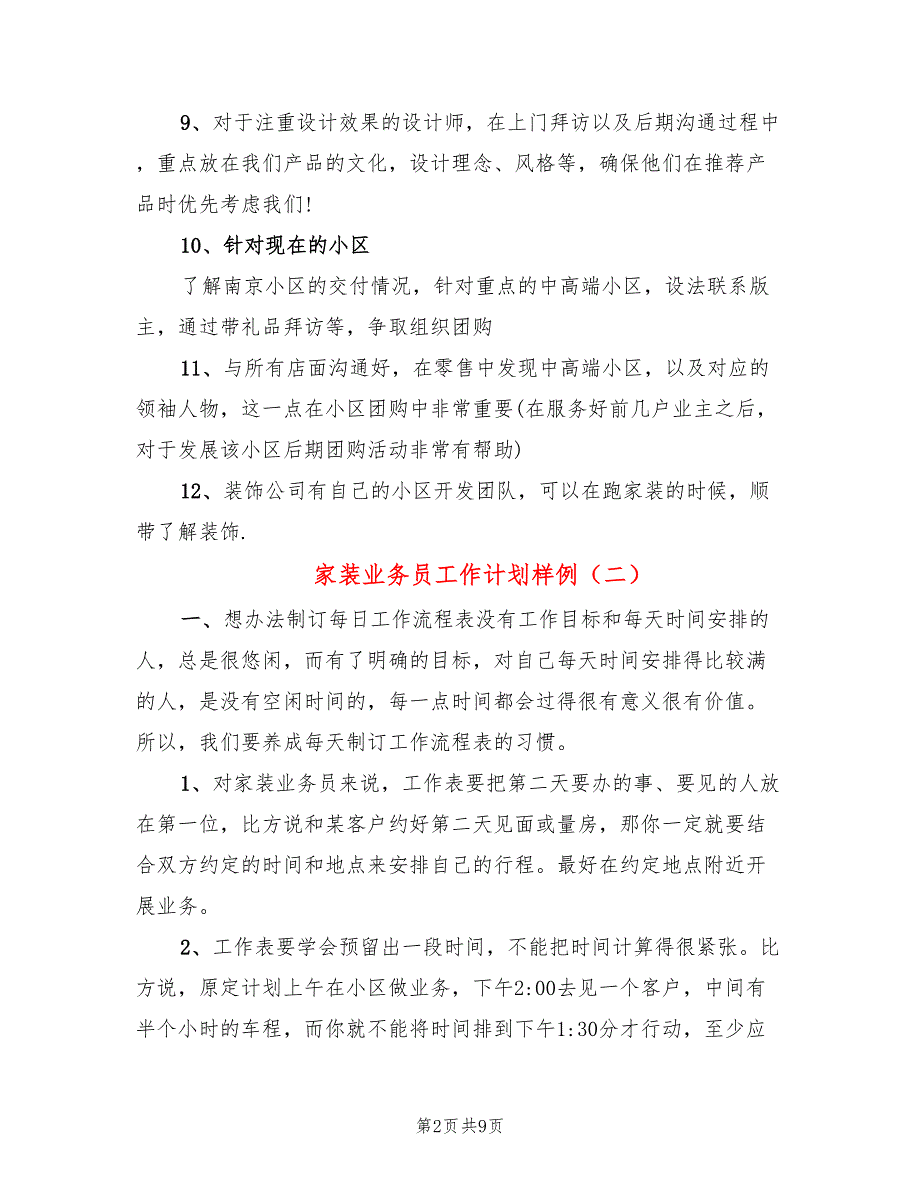 9、对于注重设计效果的设计师，在上门拜访以及后期沟通过程中
，重点放在我们产品的文化，设计理念、风格等，确保他们在推荐产
品时优先考虑我们!
10、针对现在的小区
了解南京小区的交付情况，针对重点的中高端小区，设法联系版
主，通过带礼品拜访等，争取组织团购
11、与所有店面沟通好，在零售中发现中高端小区，以及对应的
领袖人物，这一点在小区团购中非常重要(在服务好前几户业主之后，
对于发展该小区后期团购活动非常有帮助)
12、装饰公司有自己的小区开发团队，可以在跑家装的时候，顺
带了解装饰.
家装业务员工作计划样例（二）
一、想办法制订每日工作流程表没有工作目标和每天时间安排的
人，总是很悠闲，而有了明确的目标，对自己每天时间安排得比较满
的人，是没有空闲时间的，每一点时间都会过得很有意义很有价值。
所以，我们要养成每天制订工作流程表的习惯。
1、对家装业务员来说，工作表要把第二天要办的事、要见的人放
在第一位，比方说和某客户约好第二天见面或量房，那你一定就要结
合双方约定的时间和地点来安排自己的行程。最好在约定地点附近开
展业务。
2、工作表要学会预留出一段时间，不能把时间计算得很紧张。比
方说，原定计划上午在小区做业务，下午2:00去见一个客户，中间有
半个小时的车程，而你就不能将时间排到下午1:30分才行动，至少应
第2页共9页